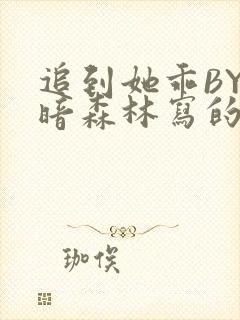 追到她乖BY
暗森林寫的
珈俟